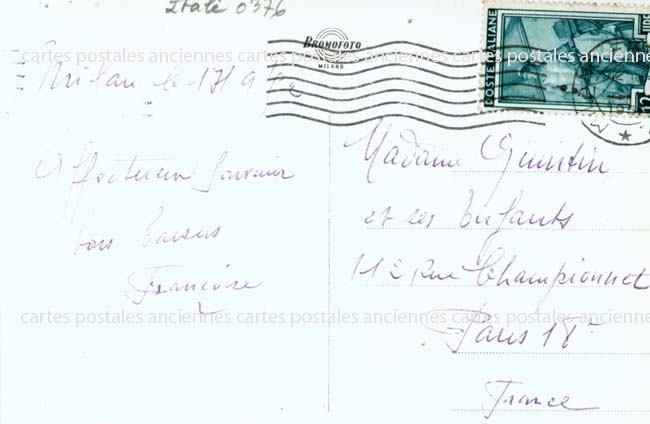 Italé 0376
BROMOFOTO
MILANO
POSTE ITALIANE
cartes postales anciennes cartes postales anciennes cartes postales anciennes
Milan le 17/9/52
Affectueux Souvenir
bons baisers
Françoise
Madame Quintin
et ses Enfants
112 Rue Championnet
Paris 18e
France
cartes postales anciennes cartes postales anciennes cartes postales anciennes